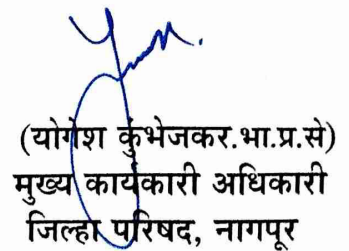 (योगेश कुंभेजकर.भा.प्र.से)
मुख्य कार्यकारी अधिकारी
जिल्हा परिषद, नागपूर